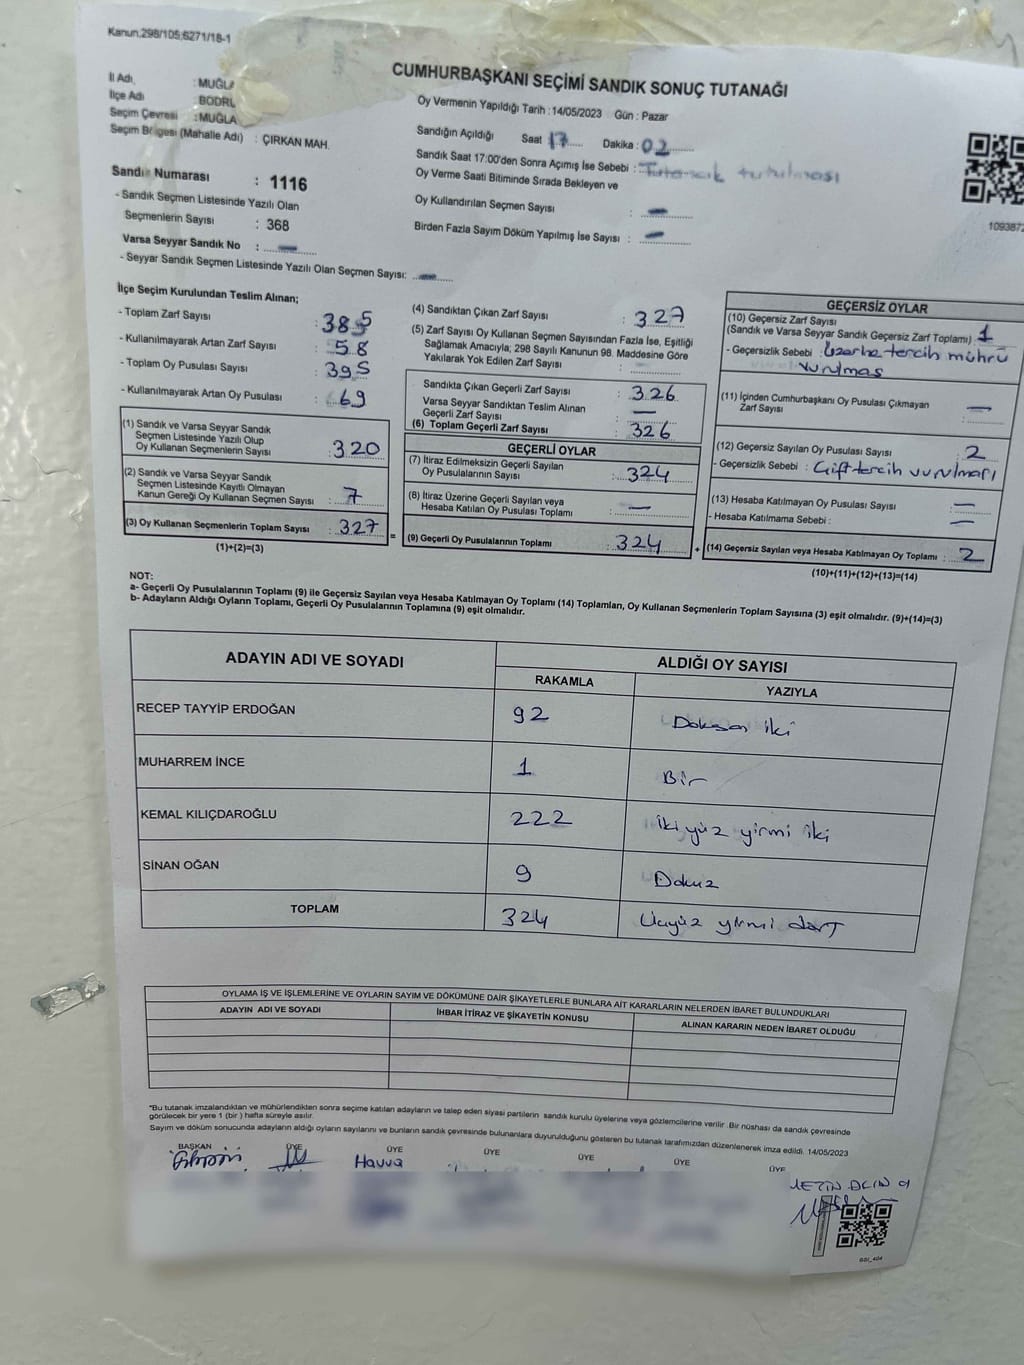 Kanun.298/105;6271/18-1
CUMHURBAŞKANI SEÇİMİ SANDIK SONUÇ TUTANAĞI
İl Adı : MUĞLA
İlçe Adı : BODRU
Seçim Çevresi : MUĞLA
Seçim Bölgesi (Mahalle Adı) : ÇIRKAN MAH.
Oy Vermenin Yapıldığı Tarih : 14/05/2023 Gün : Pazar
Sandığın Açıldığı Saat 17 Dakika : 02
Sandık Saat 17:00'den Sonra Açımış İse Sebebi : Tutanak tutulması
Oy Verme Saati Bitiminde Sırada Bekleyen ve
Oy Kullandırılan Seçmen Sayısı : —
Birden Fazla Sayım Döküm Yapılmış İse Sayısı : —
Sandık Numarası : 1116
- Sandık Seçmen Listesinde Yazılı Olan
Seçmenlerin Sayısı : 368
Varsa Seyyar Sandık No : —
- Seyyar Sandık Seçmen Listesinde Yazılı Olan Seçmen Sayısı: —
1093872
İlçe Seçim Kurulundan Teslim Alınan;
- Toplam Zarf Sayısı : 385
- Kullanılmayarak Artan Zarf Sayısı : 58
- Toplam Oy Pusulası Sayısı : 395
- Kullanılmayarak Artan Oy Pusulası : 69
(1) Sandık ve Varsa Seyyar Sandık
Seçmen Listesinde Yazılı Olup
Oy Kullanan Seçmenlerin Sayısı : 320
(2) Sandık ve Varsa Seyyar Sandık
Seçmen Listesinde Kayıtlı Olmayan
Kanun Gereği Oy Kullanan Seçmen Sayısı : 7
(3) Oy Kullanan Seçmenlerin Toplam Sayısı : 327
(1)+(2)=(3)
(4) Sandıktan Çıkan Zarf Sayısı : 327
(5) Zarf Sayısı Oy Kullanan Seçmen Sayısından Fazla İse, Eşitliği
Sağlamak Amacıyla; 298 Sayılı Kanunun 98. Maddesine Göre
Yakılarak Yok Edilen Zarf Sayısı :
Sandıkta Çıkan Geçerli Zarf Sayısı : 326
Varsa Seyyar Sandıktan Teslim Alınan
Geçerli Zarf Sayısı : —
(6) Toplam Geçerli Zarf Sayısı : 326
GEÇERLİ OYLAR
(7) İtiraz Edilmeksizin Geçerli Sayılan
Oy Pusulalarının Sayısı : 324
(8) İtiraz Üzerine Geçerli Sayılan veya
Hesaba Katılan Oy Pusulası Toplamı : —
(9) Geçerli Oy Pusulalarının Toplamı : 324
GEÇERSİZ OYLAR
(10) Geçersiz Zarf Sayısı
(Sandık ve Varsa Seyyar Sandık Geçersiz Zarf Toplamı) : 1
- Geçersizlik Sebebi : Üzerine tercih mührü
vurulması
(11) İçinden Cumhurbaşkanı Oy Pusulası Çıkmayan
Zarf Sayısı : —
(12) Geçersiz Sayılan Oy Pusulası Sayısı : 2
- Geçersizlik Sebebi : Çift tercih vurulması
(13) Hesaba Katılmayan Oy Pusulası Sayısı : —
- Hesaba Katılmama Sebebi : —
(14) Geçersiz Sayılan veya Hesaba Katılmayan Oy Toplamı : 2
(10)+(11)+(12)+(13)=(14)
NOT:
a- Geçerli Oy Pusulalarının Toplamı (9) ile Geçersiz Sayılan veya Hesaba Katılmayan Oy Toplamı (14) Toplamları, Oy Kullanan Seçmenlerin Toplam Sayısına (3) eşit olmalıdır. (9)+(14)=(3)
b- Adayların Aldığı Oyların Toplamı, Geçerli Oy Pusulalarının Toplamına (9) eşit olmalıdır.
ADAYIN ADI VE SOYADI ALDIĞI OY SAYISI
RAKAMLA YAZIYLA
RECEP TAYYİP ERDOĞAN 92 Doksan iki
MUHARREM İNCE 1 Bir
KEMAL KILIÇDAROĞLU 222 İki yüz yirmi iki
SİNAN OĞAN 9 Dokuz
TOPLAM 324 Üçyüz yirmi dört
OYLAMA İŞ VE İŞLEMLERİNE VE OYLARIN SAYIM VE DÖKÜMÜNE DAİR ŞİKAYETLERLE BUNLARA AİT KARARLARIN NELERDEN İBARET BULUNDUKLARI
ADAYIN ADI VE SOYADI İHBAR İTİRAZ VE ŞİKAYETİN KONUSU ALINAN KARARIN NEDEN İBARET OLDUĞU
*Bu tutanak imzalandıktan ve mühürlendikten sonra seçime katılan adayların ve talep eden siyasi partilerin sandık kurulu üyelerine veya gözlemcilerine verilir. Bir nüshası da sandık çevresinde
görülecek bir yere 1 (bir) hafta süreyle asılır.
Sayım ve döküm sonucunda adayların aldığı oyların sayılarını ve bunların sandık çevresinde bulunanlara duyurulduğunu gösteren bu tutanak tarafımızdan düzenlenerek imza edildi. 14/05/2023
BAŞKAN ÜYE ÜYE ÜYE ÜYE ÜYE ÜYE
Havva
METİN